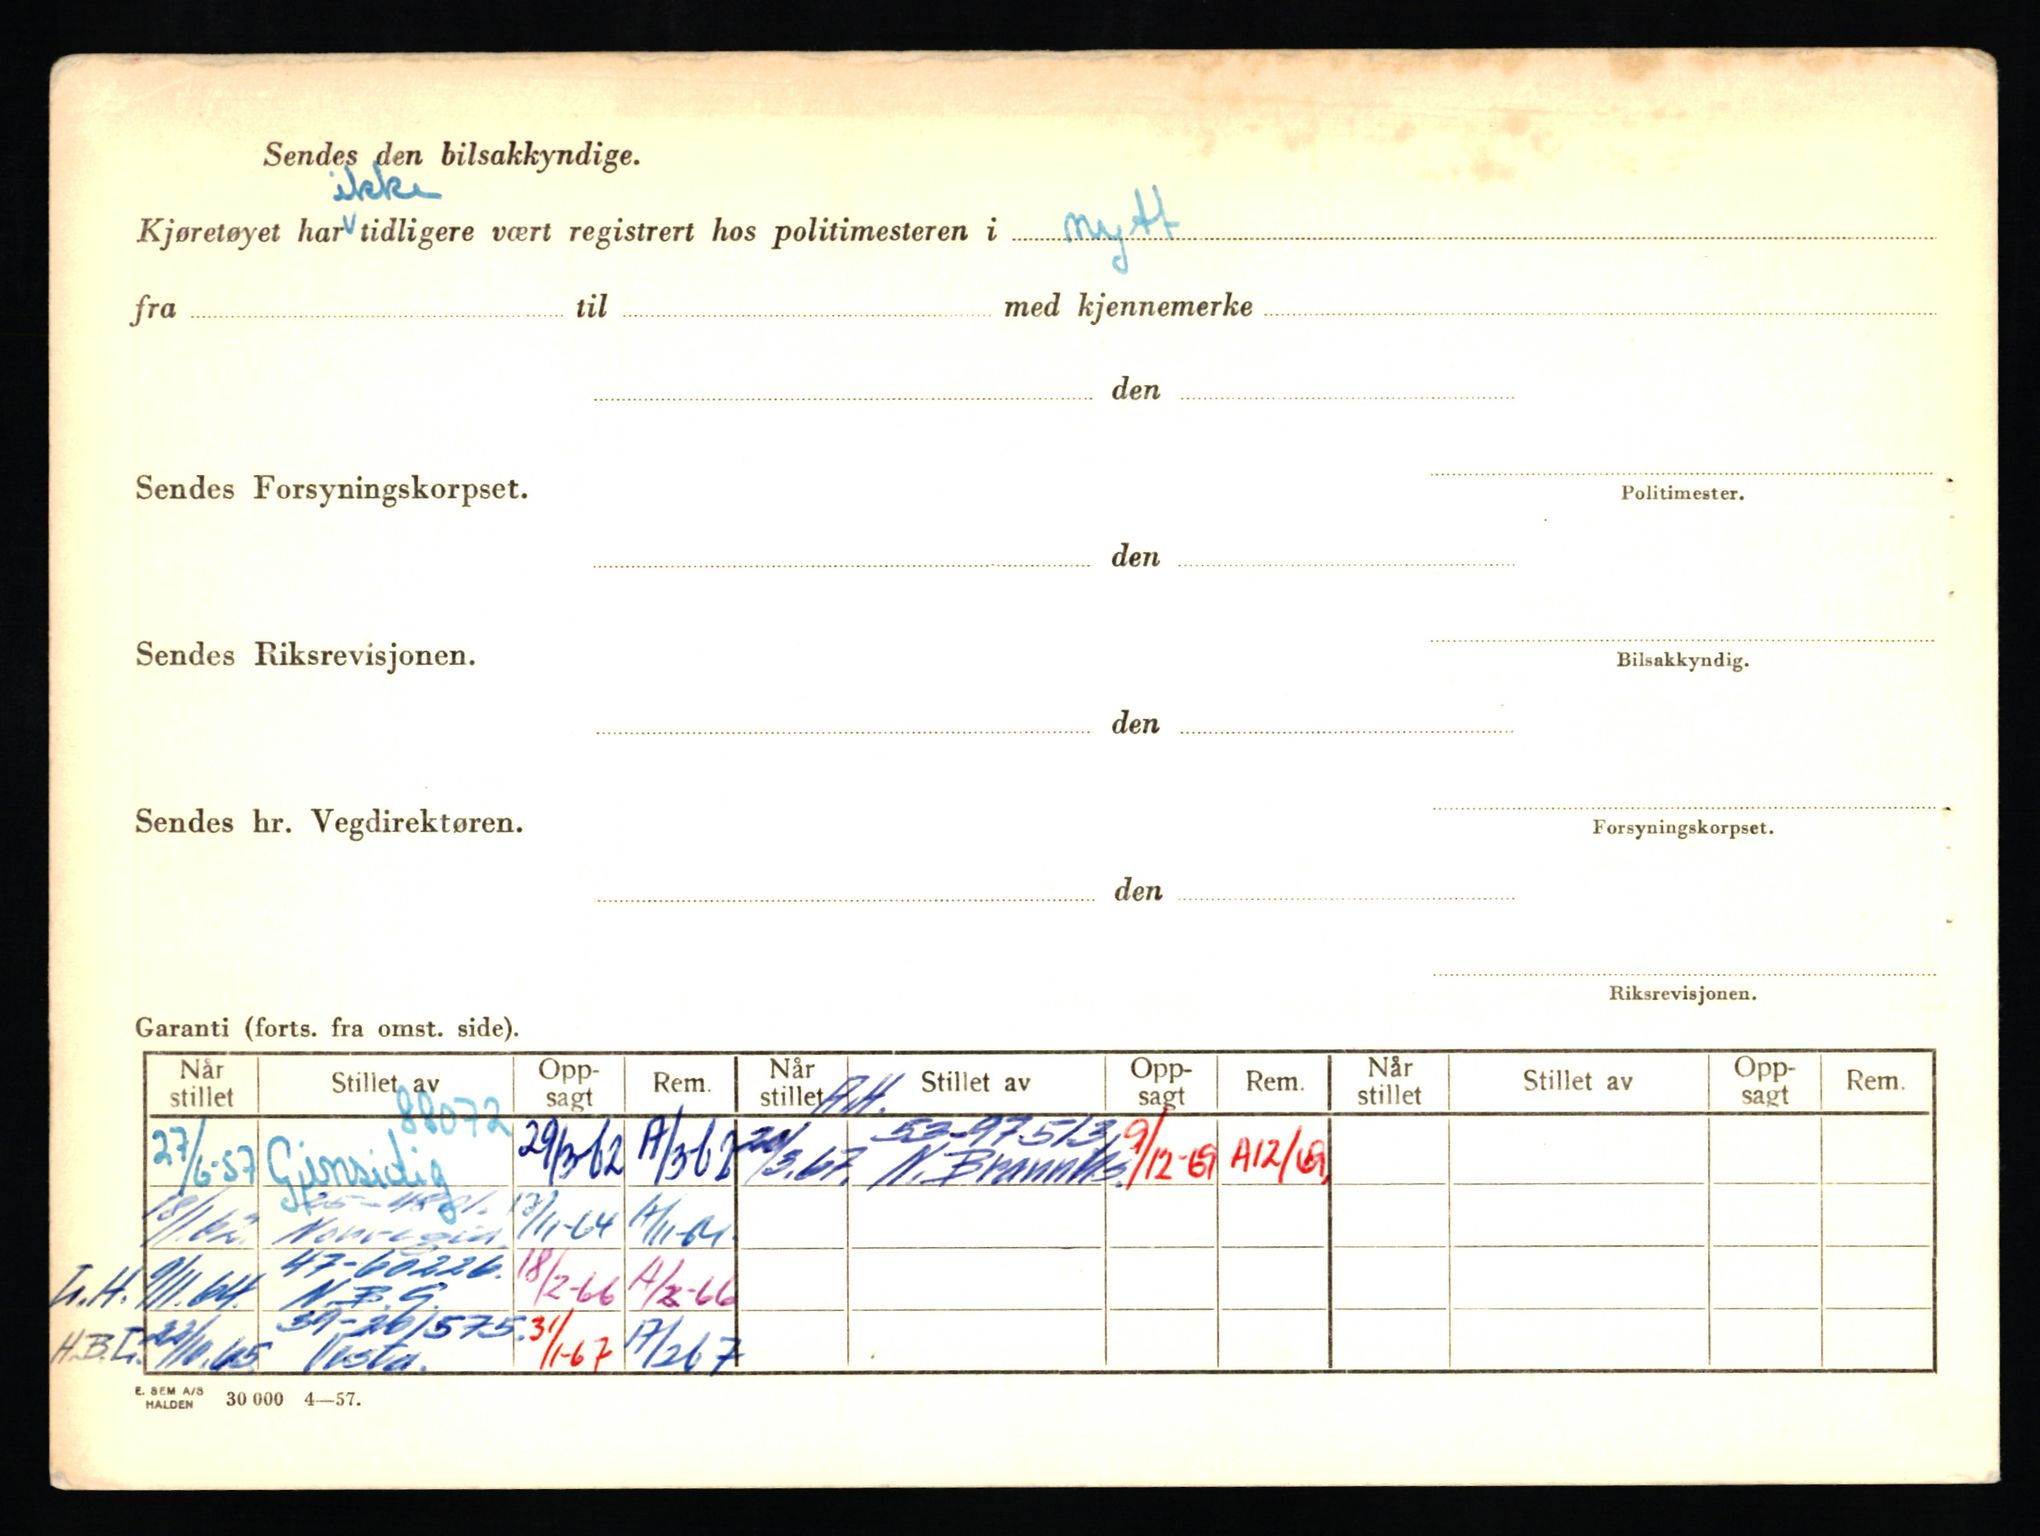 Sendes den bilsakkyndige.
ikke
Kjøretøyet har tidligere vært registrert hos politimesteren i nytt
fra til med kjennemerke
den
Politimester.
Sendes Forsyningskorpset.
den
Bilsakkyndig.
Sendes Riksrevisjonen.
den
Forsyningskorpset.
Sendes hr. Vegdirektøren.
den
Riksrevisjonen.
Garanti (forts. fra omst. side).
Når stillet Stillet av Opp-sagt Rem. Når stillet Stillet av Opp-sagt Rem. Når stillet Stillet av Opp-sagt Rem.
88072
27/6-57 Gjensidig 29/3-62 A/3-62
53-97513 9/12-69 A12/69
/3.67. N. Brannkls.
17/11-64 A/11-64.
Norvegia.
47-60226. 18/2-66 A/2-66
L.H. 9/11.64. N.B.G.
39-261575. 31/1-67 A/267
H.B.L. 22/10.65 Vesta.
E. SEM A/S
HALDEN 30 000 4—57.